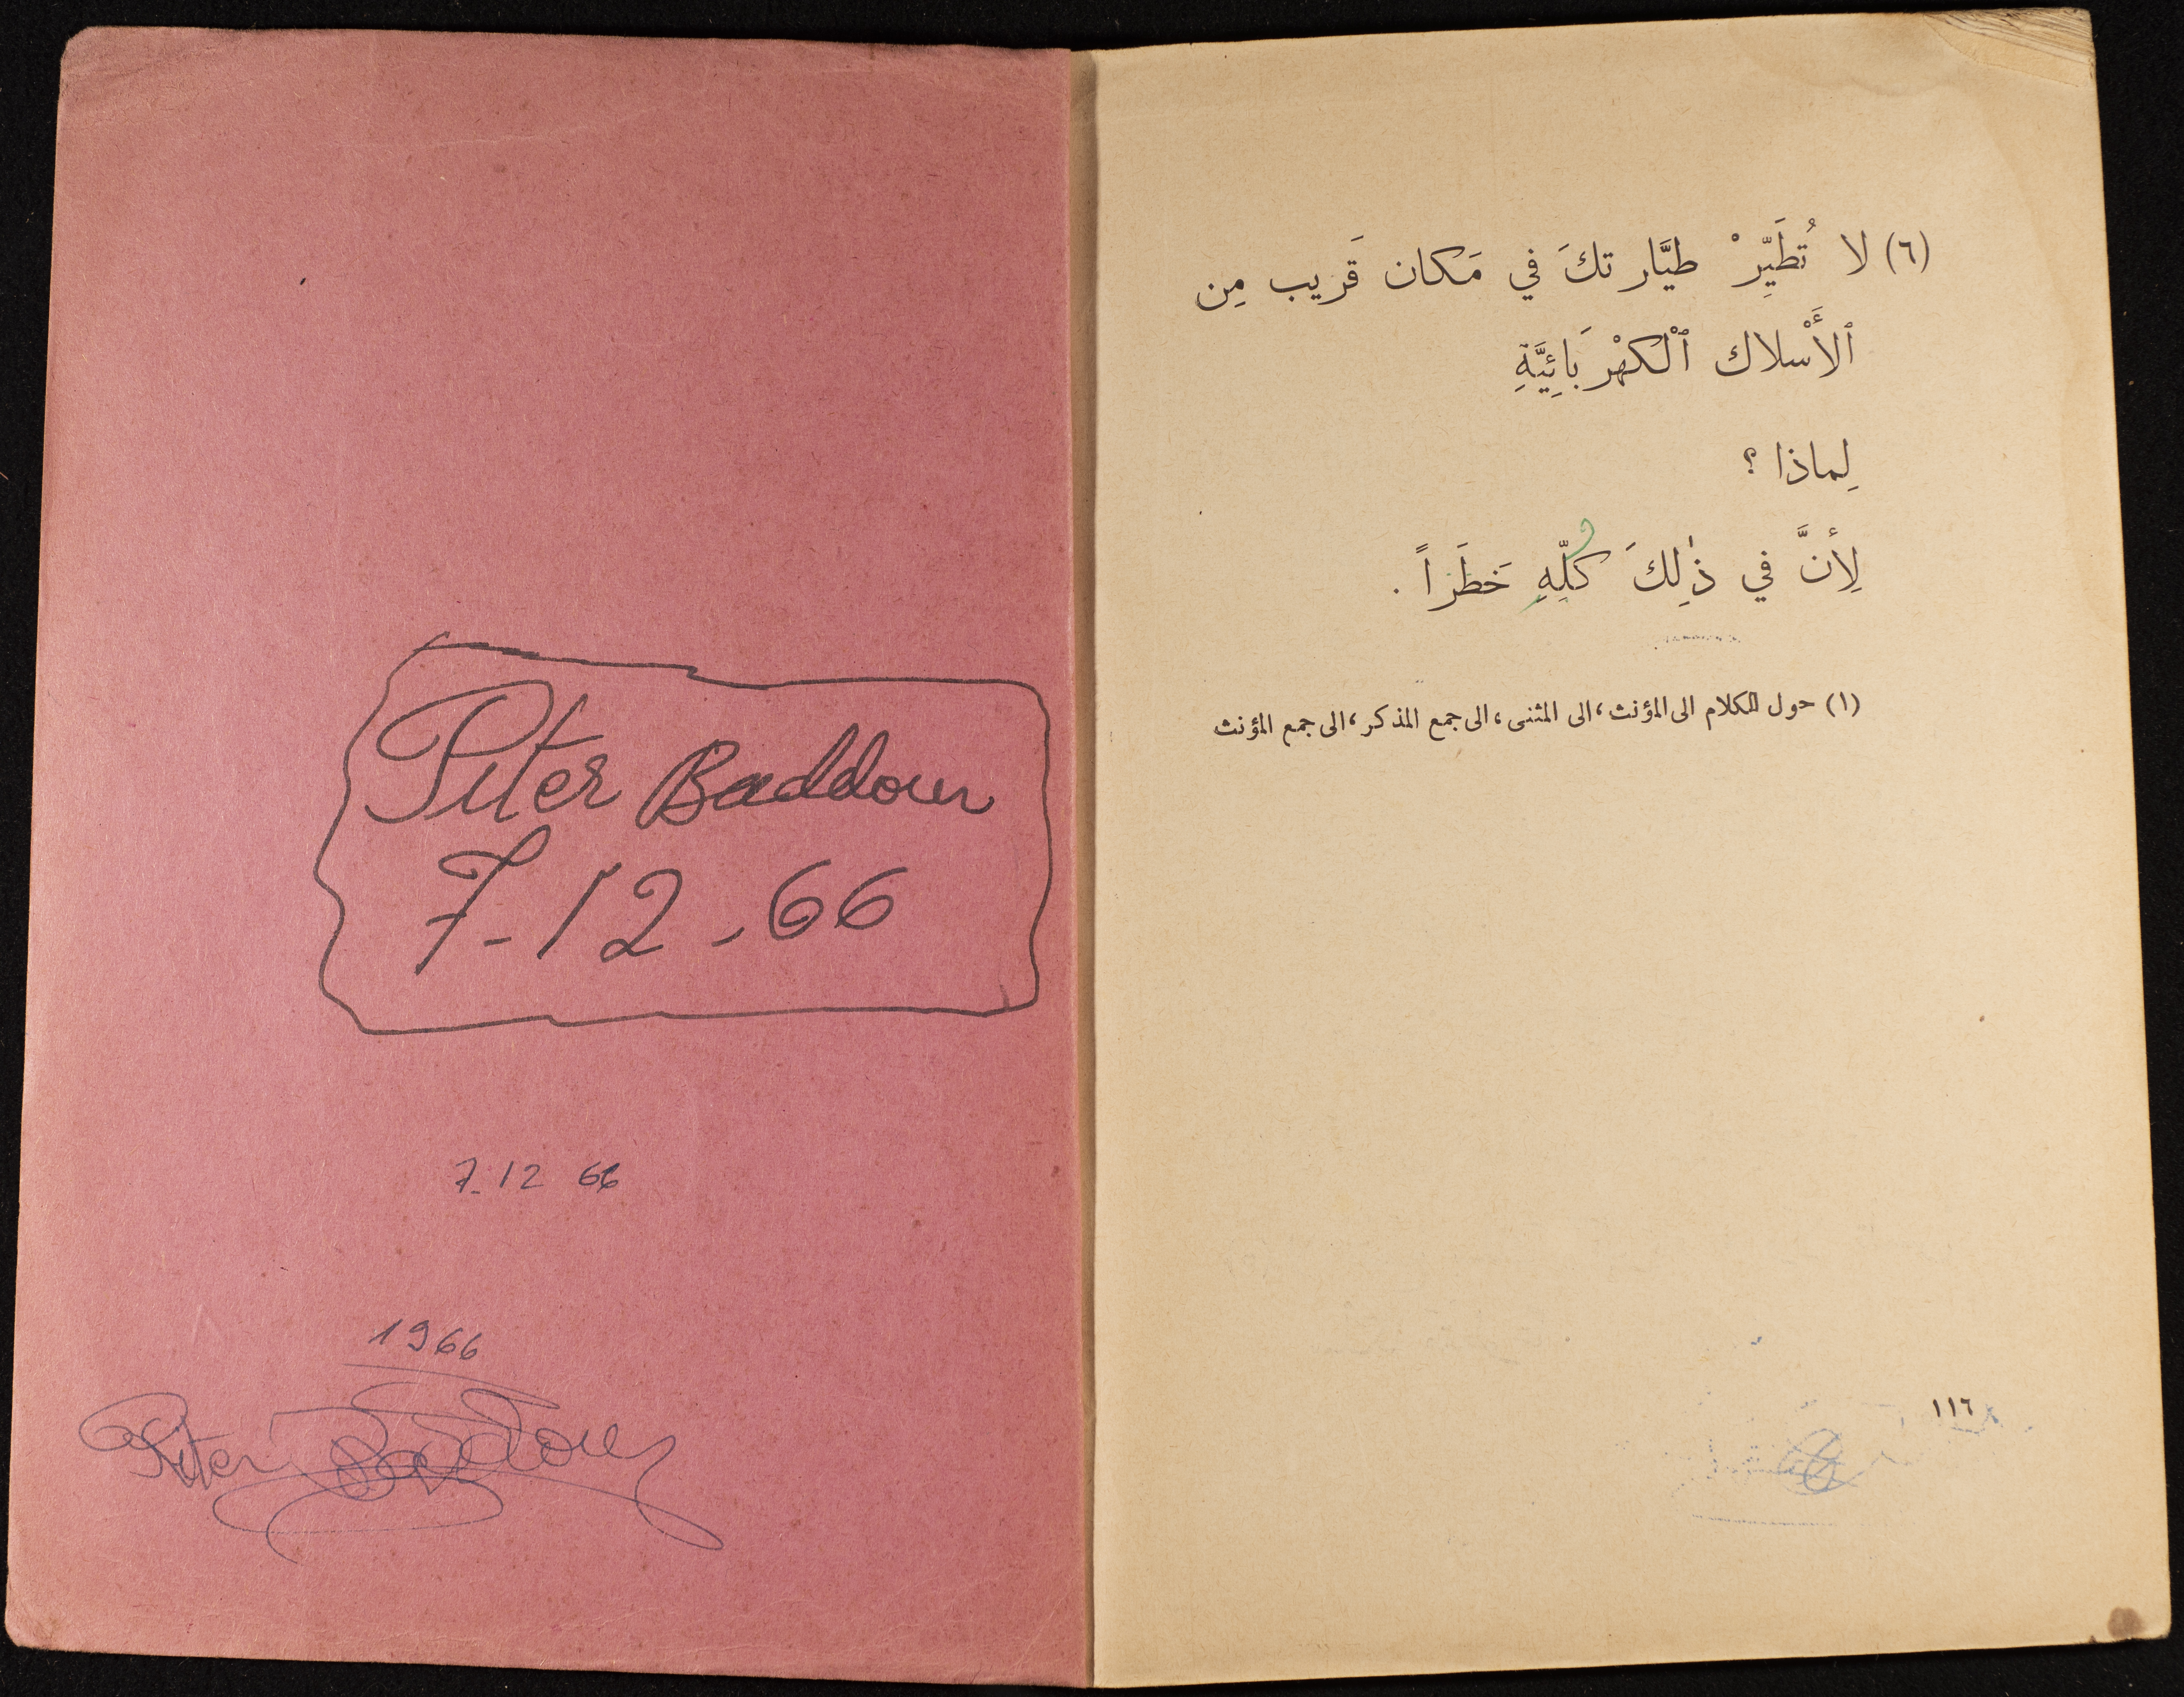 Piter Baddour
7-12-66
7-12 66
1966
Piter Baddour
(٦) لا تُطَيِّرْ طيَّارتكَ في مَكان قَريب مِن
ٱلأَسْلاك ٱلْكهْرَبَائِيَّةِ
لِماذا ؟
لِأنَّ في ذٰلِكَ كلِّهِ خَطَراً .
(١) حول الكلام الى المؤنث، الى المثنى، الى جمع المذكر، الى جمع المؤنث
١١٦